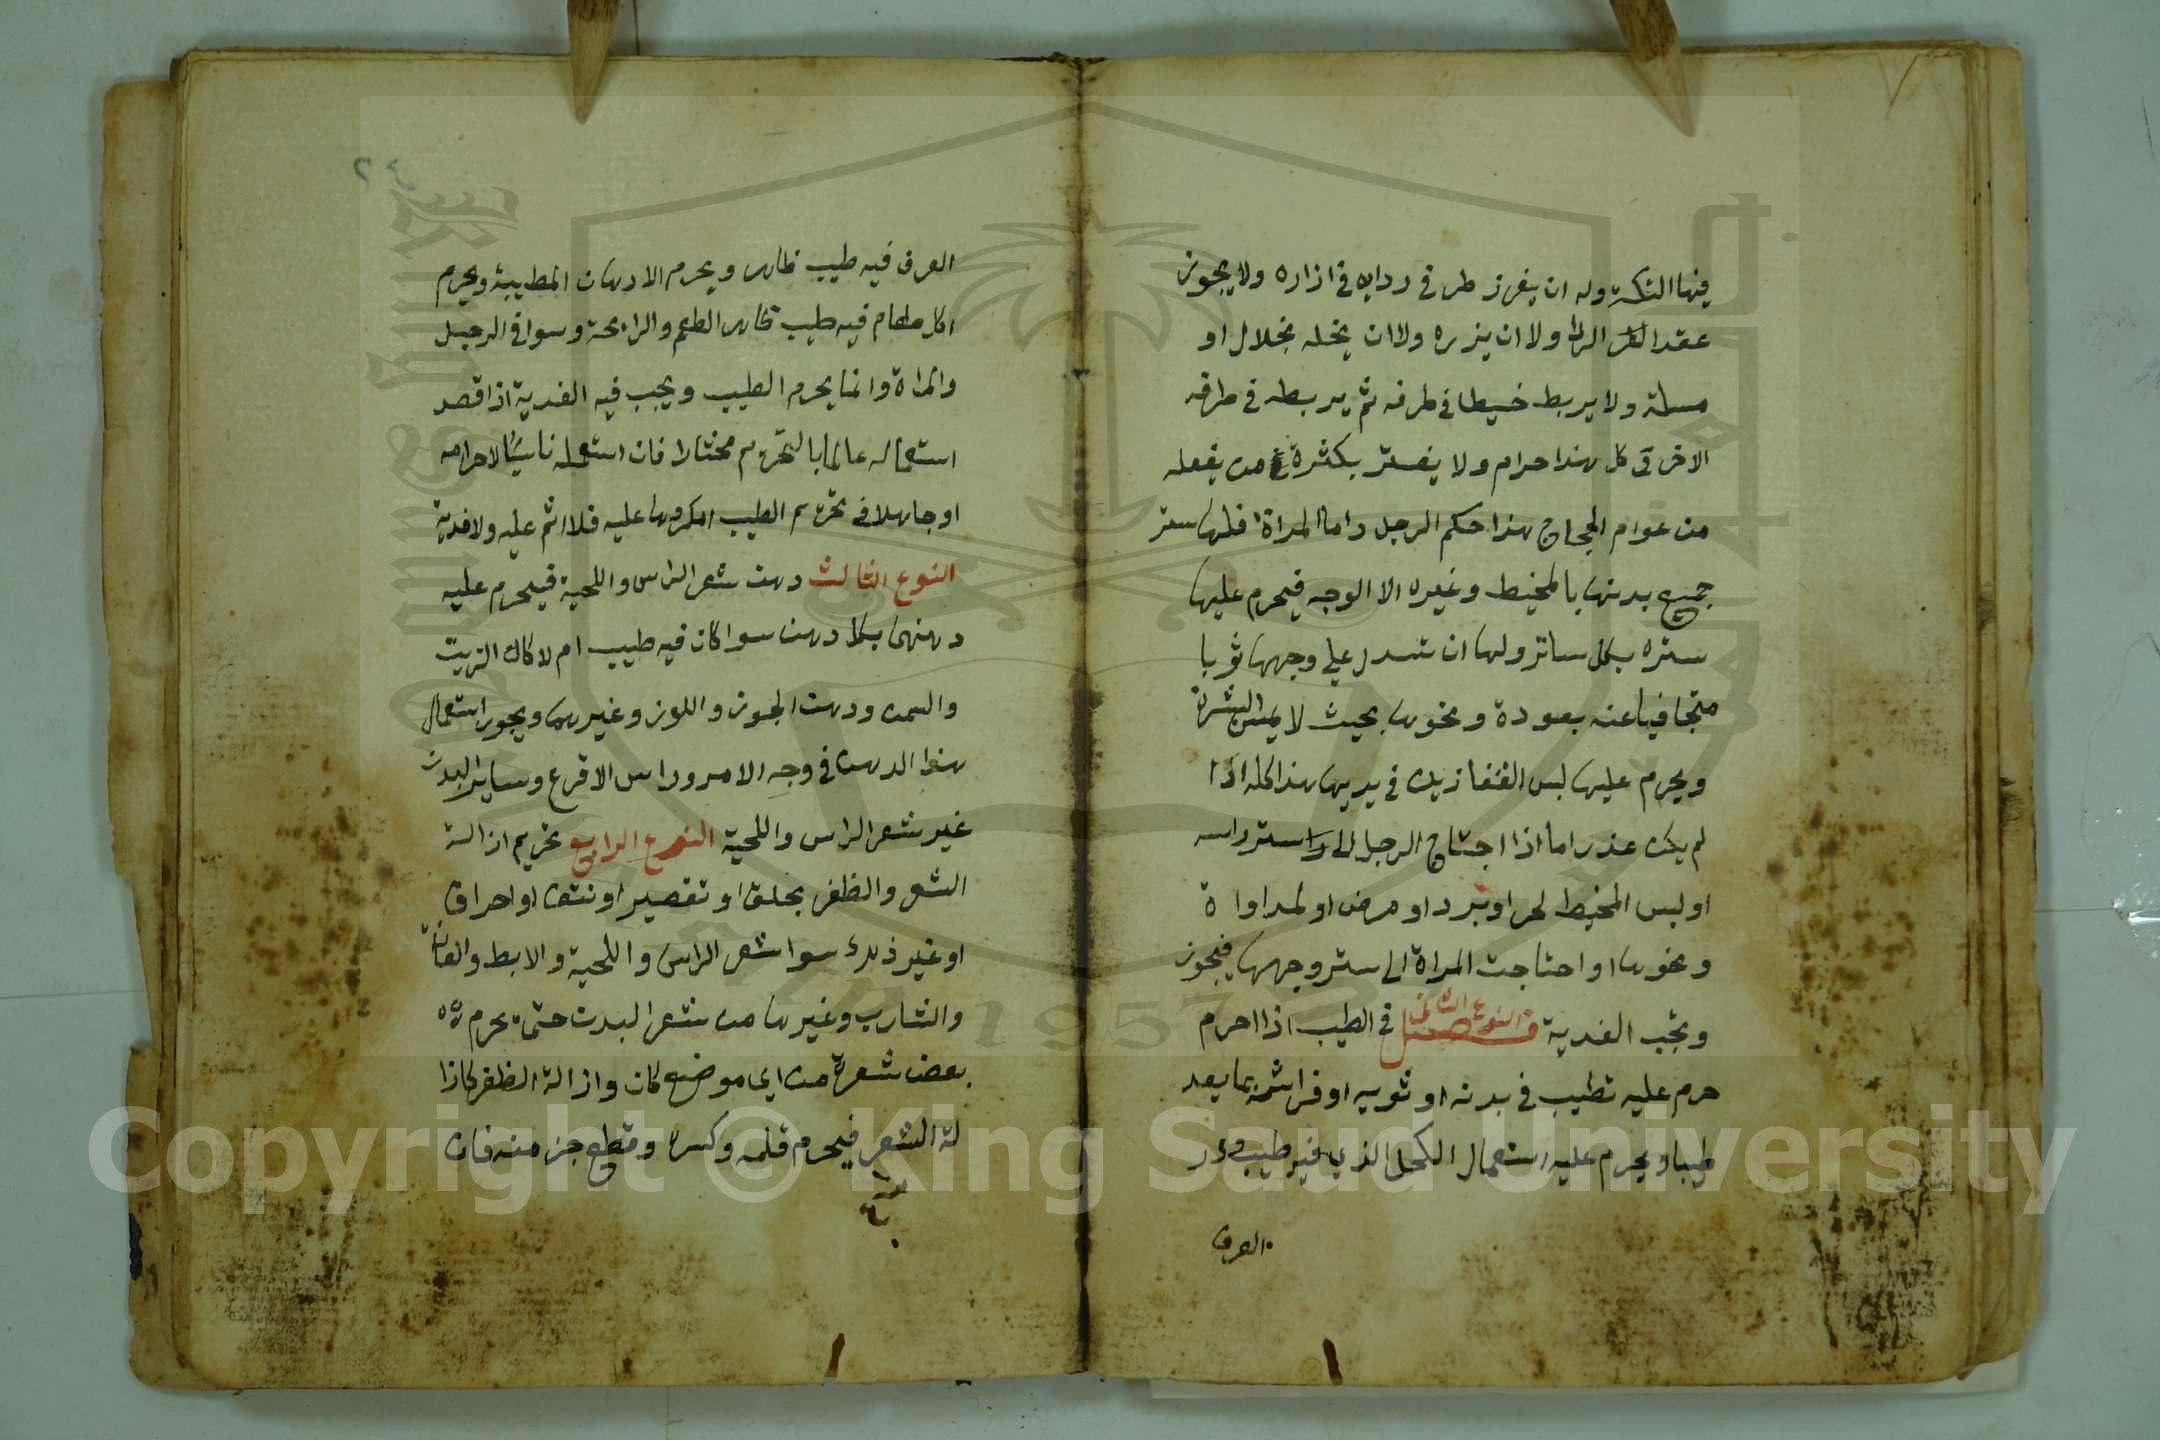 فيها التكة وله ان يغرز طرفي ردايه في ازاره ولا يجوز
عقد الردا ولا ان يزره ولا ان يخله بخلال او
مسلة ولا يربط خيطا في طرفه ثم يربطه في طرفه
الاخر كل هذا حرام ولا يغتر بكثرة من يفعله
من عوام الحجاج هذا حكم الرجل واما المراة فلها ستر
جميع بدنها بالمخيط وغيره الا الوجه فيحرم عليها
ستره بكل ساتر ولها ان تسدل علي وجهها ثوبا
متجافيا عنه بعودة ونحوها بحيث لا يمس البشرة
ويحرم عليها لبس القفازين في يديها هذا كله اذا
لم يكن عذر اما اذا احتاج الرجل الى ستر راسه
او لبس المخيط لحر او برد او مرض او لمداواة
ونحوها او احتاجت المراة الى ستر وجهها فيجوز
وتجب الفدية فصل النوع الثاني في الطيب اذا احرم
حرم عليه تطيب في بدنه او ثوبه او فراشه بما يعد
طيبا ويحرم عليه استعمال الكحل الذي فيه طيب
العرق
٢٤
العرق فيه طيب ظاهر ويحرم الادهان المطيبة ويحرم
اكل طعام فيه طيب ظاهر الطعم والرايحة وسوا في الرجل
والمراة وانما يحرم الطيب ويجب فيه الفدية اذا قصد
استعماله عالما بالتحريم مختارا فان استعمله ناسيا لاحرامه
او جاهلا في تحريم الطيب او مكرها عليه فلا اثم عليه ولا فدية
النوع الثالث دهن شعر الراس واللحية فيحرم عليه
دهنهما بكل دهن سوا كان فيه طيب ام لا كالزيت
والسمن ودهن الجوز واللوز وغيرها ويجوز استعمال
هذا الدهن في وجه الامرد وراس الاقرع وساير البدن
غير شعر الراس واللحية النوع الرابع تحريم ازالة
الشعر والظفر بحلق او تقصير او نتف او احراق
او غير ذلك سوا شعر الراس واللحية والابط والعانة
والشارب وغيرها من شعر البدن حتى يحرم
بعض شعرة من اي موضع كان وازالة الظفر كازا
لة الشعر فيحرم قلمه وكسره وقطع جز منه فان
Copyright © King Saud University
1957